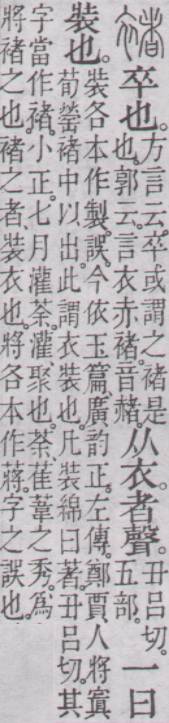 褚
卒也。
方言云。卒或謂之褚是
也。郭云。言衣赤褚。音赭。
从衣。者聲。
丑呂切。
五部。
一曰
裝也。
裝各本作製。誤。今依玉篇廣韵正。左傳。鄭賈人將寘
荀罃褚中以出。此謂衣裝也。凡裝綿曰著。丑呂切。其
字當作褚。小正。七月灌荼。灌聚也。荼、萑葦之秀。爲
將褚之也。褚之者、裝衣也。將各本作蔣。字之誤也